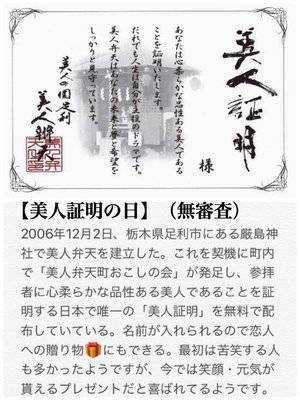 美人証明
様
あなたは心柔らかな品性ある美人である
ことを証明いたします。
だれでも人生は自分が主役のドラマです。
美人弁天はあなたの未来に夢と希望を
しっかりと見守っています。
美人の国 足利
美人辨天
【美人証明の日】（無審査）
2006年12月2日、栃木県足利市にある厳島神
社で美人弁天を建立した。これを契機に町内
で「美人弁天町おこしの会」が発足し、参拝
者に心柔らかな品性ある美人であることを証
明する日本で唯一の「美人証明」を無料で配
布していている。名前が入れられるので恋人
への贈り物🎁にもできる。最初は苦笑する人
も多かったようですが、今では笑顔・元気が
貰えるプレゼントだと喜ばれてるようです。